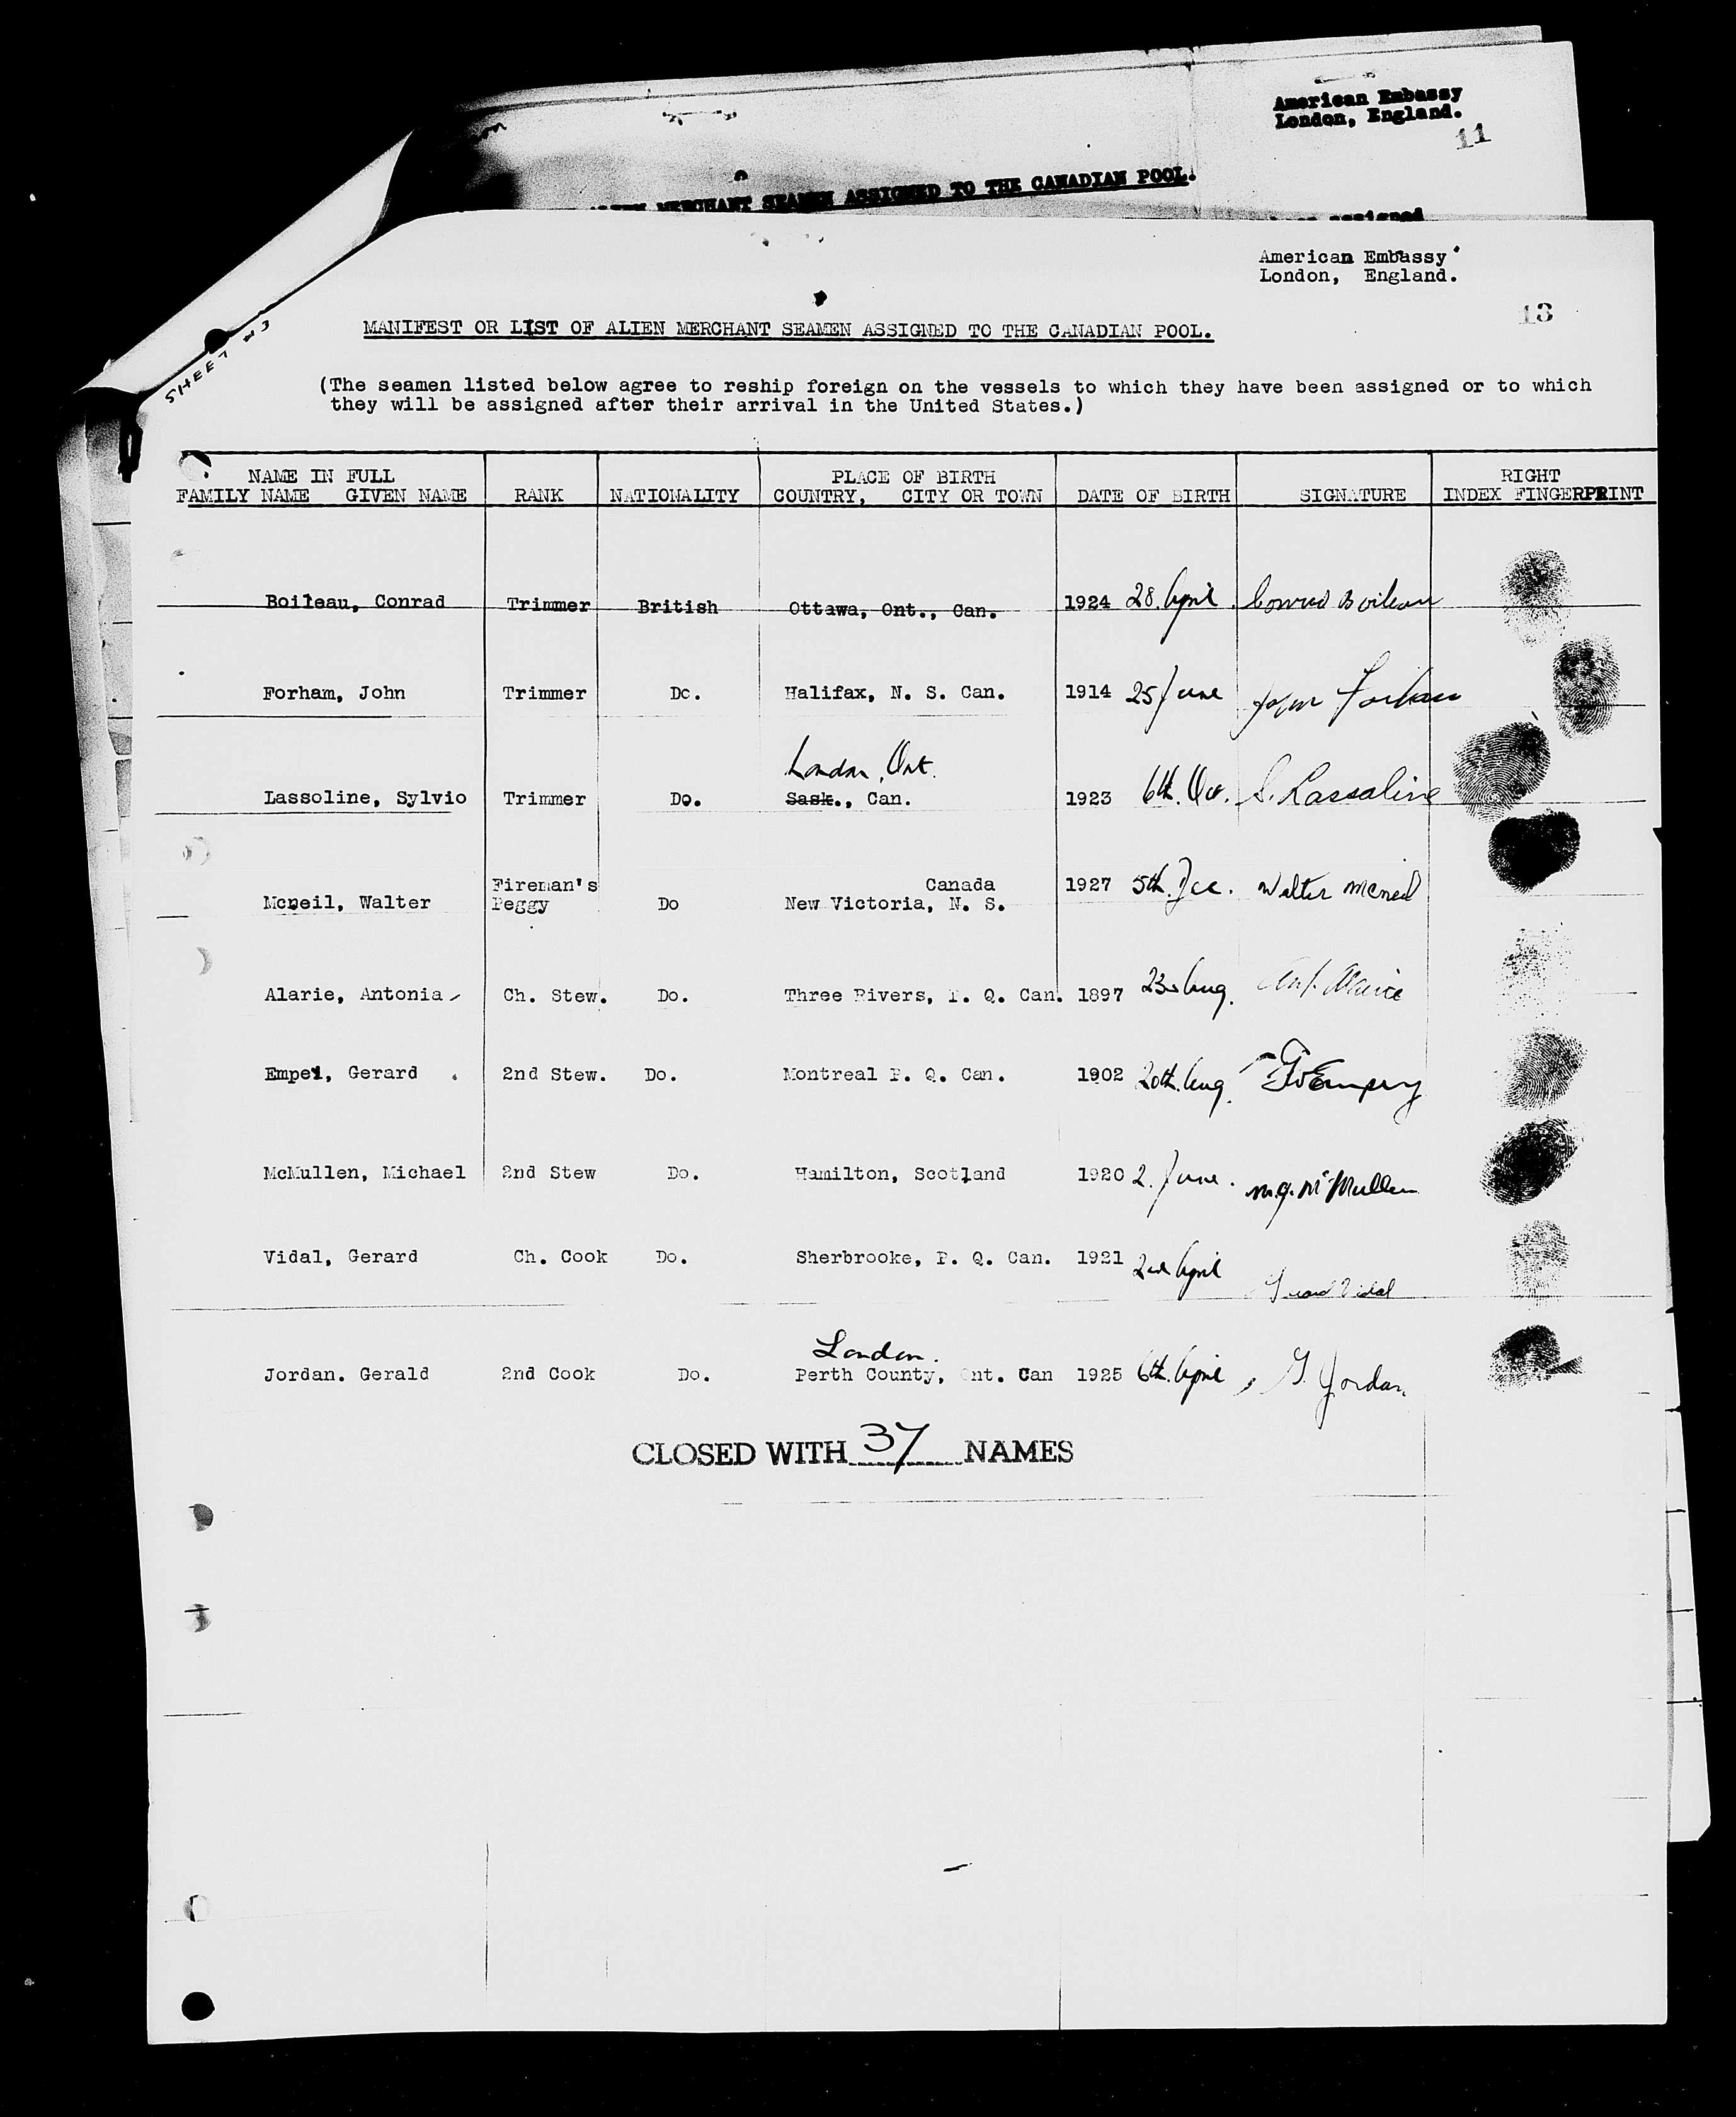 American Embassy
London, England.
11
MERCHANT SEAMEN ASSIGNED TO THE CANADIAN POOL.
assigned
American Embassy
London, England.
13
SHEET No 3
MANIFEST OR LIST OF ALIEN MERCHANT SEAMEN ASSIGNED TO THE CANADIAN POOL.
(The seamen listed below agree to reship foreign on the vessels to which they have been assigned or to which
they will be assigned after their arrival in the United States.)
NAME IN FULL PLACE OF BIRTH RIGHT
FAMILY NAME GIVEN NAME RANK NATIONALITY COUNTRY, CITY OR TOWN DATE OF BIRTH SIGNATURE INDEX FINGERPRINT
Boileau, Conrad Trimmer British Ottawa, Ont., Can. 1924 28. April Conrad Boileau
Forham, John Trimmer Do. Halifax, N. S. Can. 1914 25 June John Forham
London, Ont.
Lassoline, Sylvio Trimmer Do. Sask., Can. 1923 6th. S. Lassaline
Fireman's Canada 1927 5th. Dec. Walter Mcneil
Mcneil, Walter Peggy Do New Victoria, N. S.
Alarie, Antonia Ch. Stew. Do. Three Rivers, P. Q. Can. 1897 23rd Aug. Ant. Alarie
Empei, Gerard 2nd Stew. Do. Montreal P. Q. Can. 1902 20th. Aug. Empey
McMullen, Michael 2nd Stew Do. Hamilton, Scotland 1920 2. June. M.J. McMullen
Vidal, Gerard Ch. Cook Do. Sherbrooke, P. Q. Can. 1921 2nd April Gerard Vidal
London.
Jordan. Gerald 2nd Cook Do. Perth County, Ont. Can 1925 6th. April G. Jordan
CLOSED WITH 37 NAMES